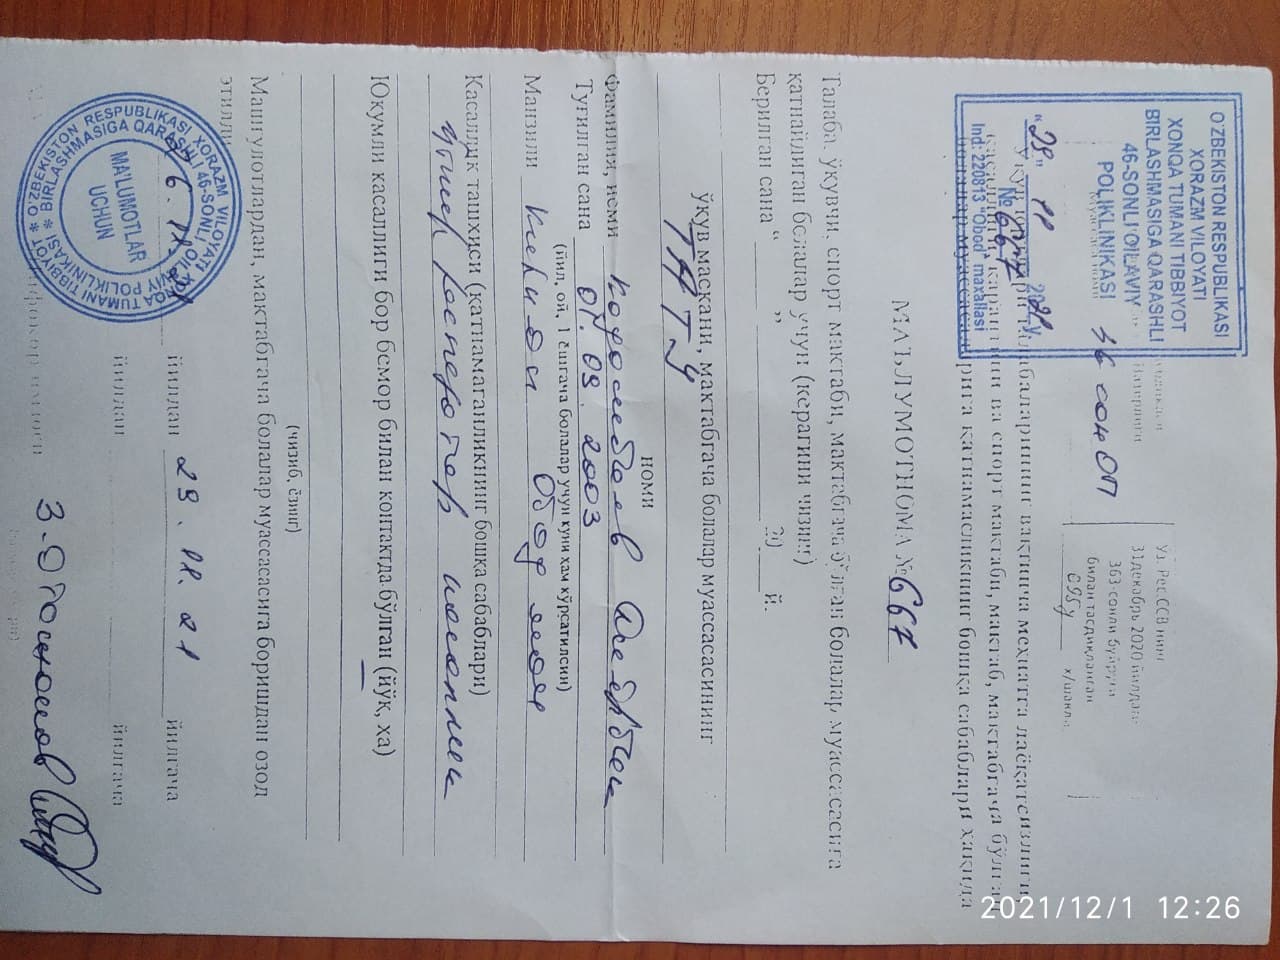 O'ZBEKISTON RESPUBLIKASI
XORAZM VILOYATI
XONQA TUMANI TIBBIYOT
BIRLASHMASIGA QARASHLI
46-SONLI OILAVIY
POLIKLINIKASI
"28" 11 2021 y.
№ 667
Ind: 220813 "Obod" maxallasi
46 сон ОП
Ўз. Рес.ССВ нинг
31декабрь 2020 йилдаги
363-сонли буйруғи
билан тасдиқланган
095у х/шакли
вақтинча меҳнатга лаёқатсизлиги,
ва спорт мактаби, мактаб, мактабгача бўлган
қатнамаслигининг бошқа сабаблари ҳақида
МАЪЛУМОТНОМА № 667
Талаба, ўқувчи, спорт мактаби, мактабгача бўлган болалар муассасасига
қатнайдиган болалар учун (керагини чизинг)
Берилган сана " " 20 й.
ўқув маскани, мактабгача болалар муассасасининг
ТАТУ
номи
Фамилия, исми
Туғилган сана 07. 03. 2003
(йил, ой, 1 ёшгача болалар учун куни хам кўрсатилсин)
Манзили Обод
Касаллик ташхиси (катнамаганликнинг бошка сабаблари)
Юкумли касаллиги бор бемор билан контактда бўлган (йўқ, ха)
(чизиб, ёзинг)
Машғулотлардан, мактабгача болалар муассасасига боришдан озод
этилди
йилдан 29. 11. 21 йилгача
йилдан йилгача
O'ZBEKISTON RESPUBLIKASI XORAZM VILOYATI XONQA TUMANI TIBBIYOT
BIRLASHMASIGA QARASHLI 46-SONLI OILAVIY POLIKLINIKASI
MA'LUMOTLAR
UCHUN
2021/12/1 12:26